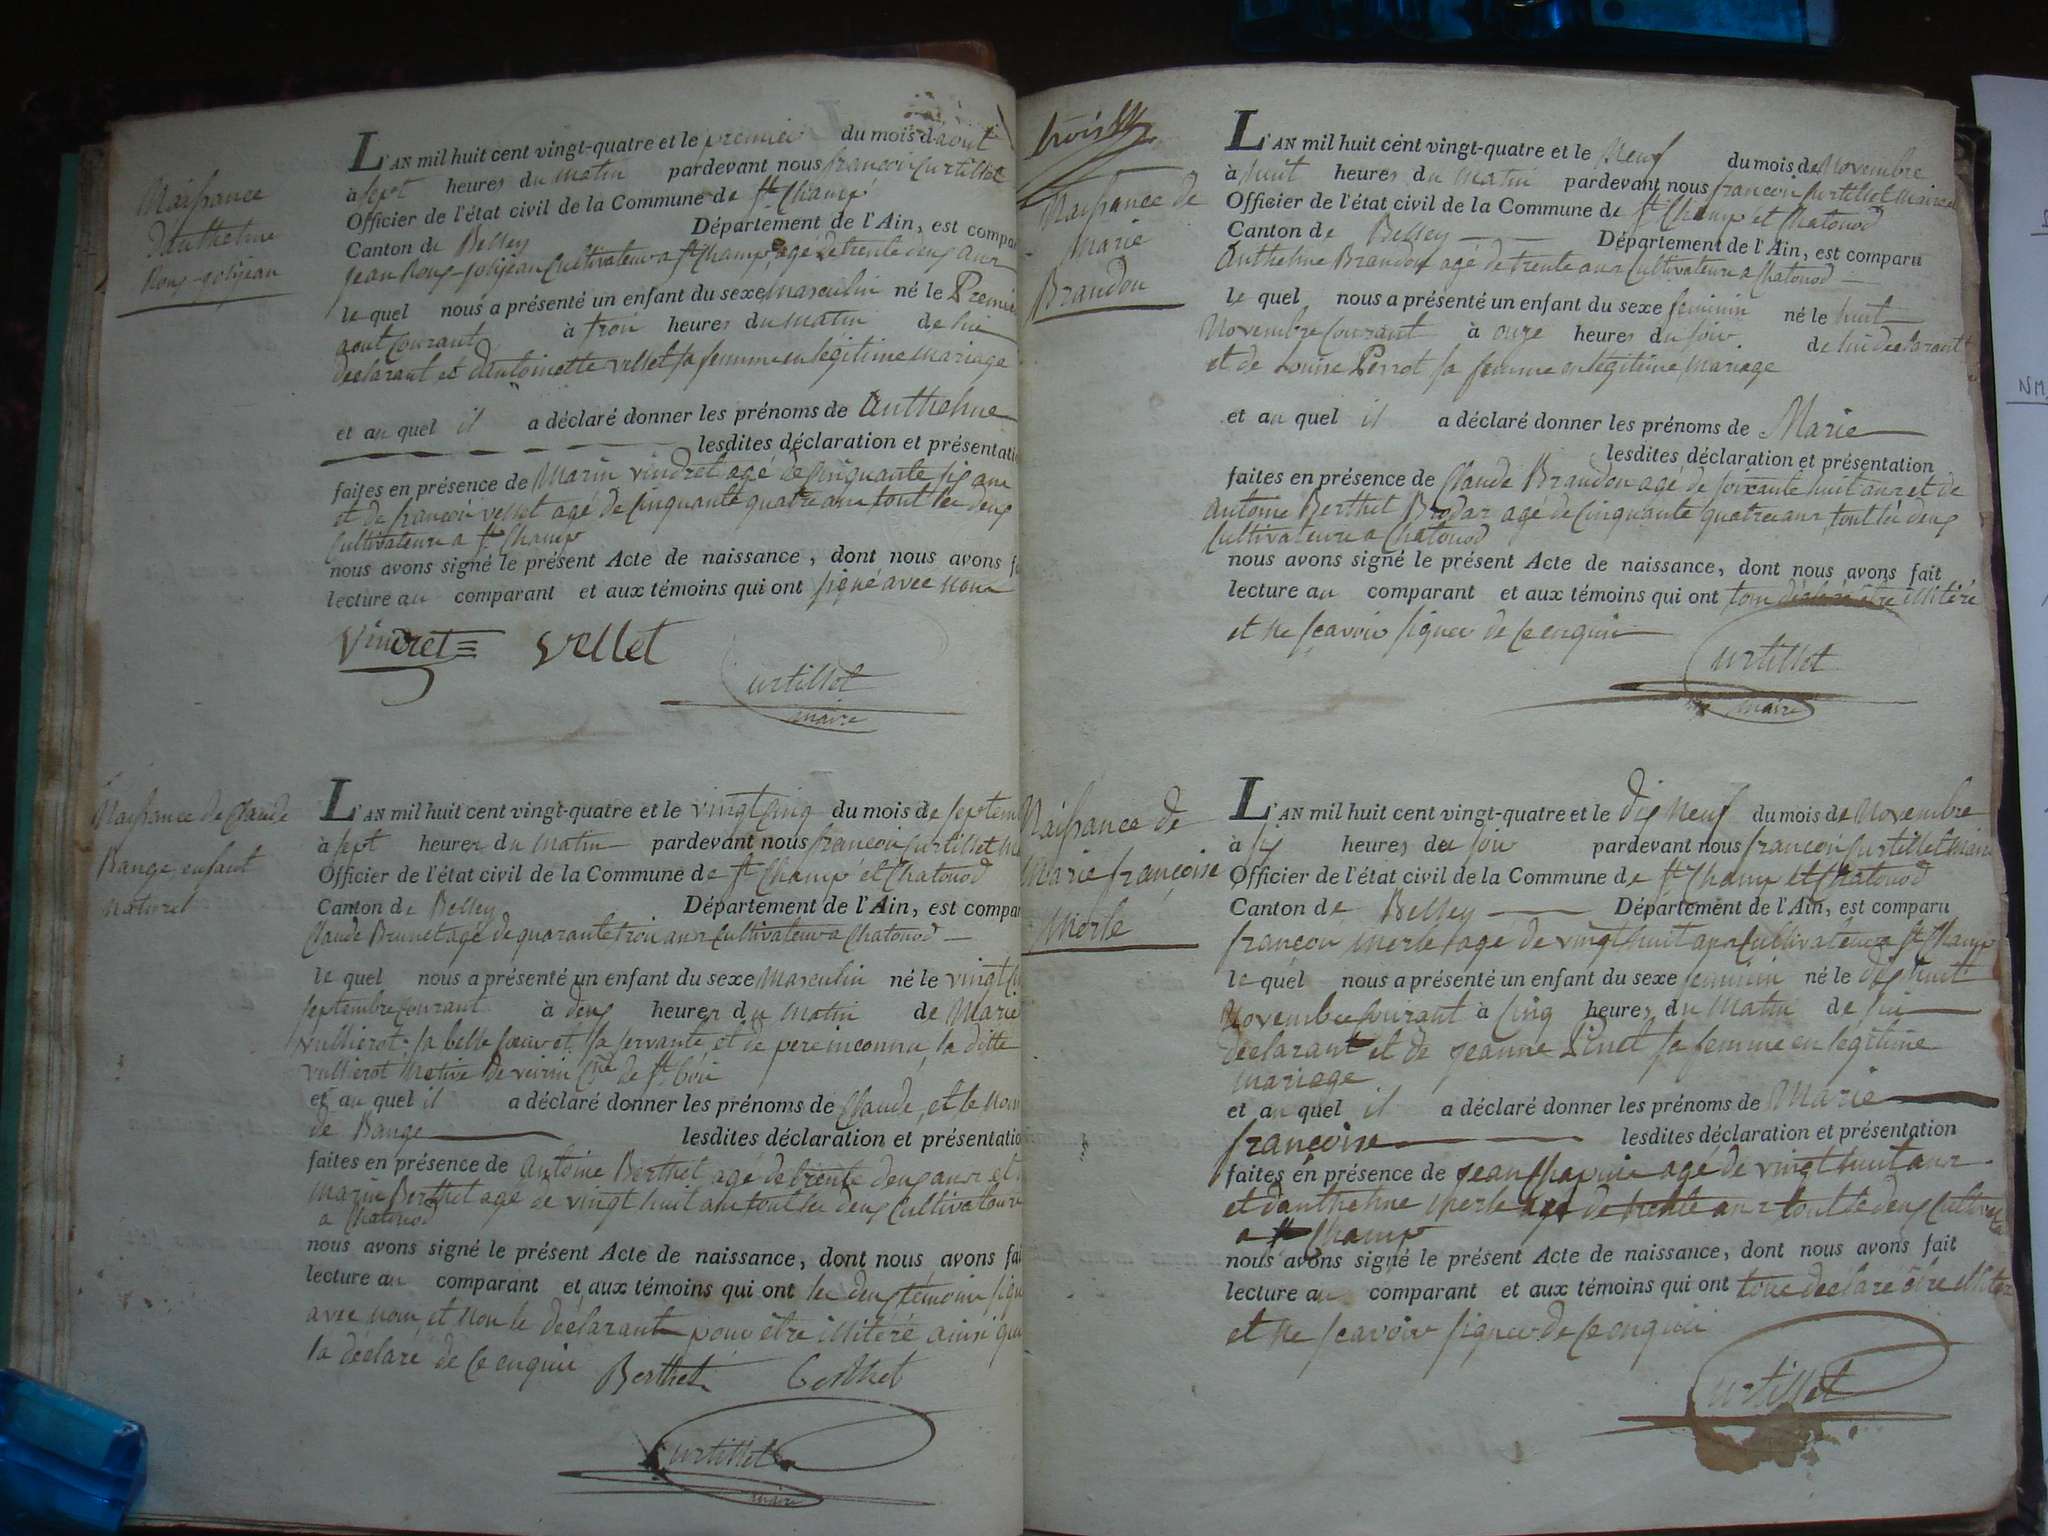 Naissance
d'anthelme
Roux-gobjean
L'AN mil huit cent vingt-quatre et le premier du mois d'aout
à sept heures du matin pardevant nous françois Curtillet
Officier de l'état civil de la Commune de St Champ
Canton de Belley Département de l'Ain, est compa
jean Roux-gobjean Cultivateur a St Champ, agé de trente deux ans
le quel nous a présenté un enfant du sexe masculin né le Premie
aout Courant à trois heures du matin de lui
declarant et d'antoinette vellet sa femme en legitime mariage
et au quel il a déclaré donner les prénoms de Anthelme
lesdites déclaration et présentati
faites en présence de Marin vindret agé de Cinquante six ans
et de françois vellet agé de Cinquante quatre ans tout les deux
Cultivateurs a St Champ
nous avons signé le présent Acte de naissance, dont nous avons f
lecture au comparant et aux témoins qui ont signé avec nous
Vindret vellet
Curtillet
maire
Naissance de Claude
Bange enfant
naturel
L'AN mil huit cent vingt-quatre et le vingt Cinq du mois de septem
à sept heures du matin pardevant nous françois Curtillet M
Officier de l'état civil de la Commune de St Champ et Chatonod
Canton de Belley Département de l'Ain, est compar
Claude Brunet agé de quarante trois ans Cultivateur a Chatonod
le quel nous a présenté un enfant du sexe Masculin né le vingt
septembre Courant à deux heures du matin de Marie
vullierot sa belle soeur et sa servante et de pere inconnu, la ditte
vullierot Native de
et au quel il a déclaré donner les prénoms de Claude, et le nom
de Bange lesdites déclaration et présentatio
faites en présence de Antoine Berthet agé de trente deux ans et
marin Berthet agé de vingt huit ans tout les deux Cultivateurs
a Chatonod
nous avons signé le présent Acte de naissance, dont nous avons fai
lecture au comparant et aux témoins qui ont les deux témoins sign
avec nous, et non le déclarant pour être illitéré ainsi qu
la déclaré de Ce enquis
Berthet Berthet
Curtillet
maire
Naissance de
Marie
Brandon
L'AN mil huit cent vingt-quatre et le Neuf du mois de Novembre
à huit heures du matin pardevant nous françois Curtillet Maire
Officier de l'état civil de la Commune de St Champ et Chatonod
Canton de Belley Département de l'Ain, est comparu
Anthelme Brandon agé de trente ans Cultivateur a Chatonod
le quel nous a présenté un enfant du sexe feminin né le huit
Novembre Courant à onze heures du soir de lui declarant
et de Louise Perrot sa femme en legitime mariage
et au quel il a déclaré donner les prénoms de Marie
lesdites déclaration et présentation
faites en présence de Claude Brandon agé de soixante huit ans et de
Antoine Berthet Brodaz agé de Cinquante quatre ans, tout les deux
Cultivateurs a Chatonod
nous avons signé le présent Acte de naissance, dont nous avons fait
lecture au comparant et aux témoins qui ont tous déclaré être illitéré
et Ne scavoir signer de Ce enquis
Curtillet
maire
Naissance de
Marie françoise
Merle
L'AN mil huit cent vingt-quatre et le dix Neuf du mois de Novembre
à six heures du soir pardevant nous françois Curtillet Maire
Officier de l'état civil de la Commune de St Champ et Chatonod
Canton de Belley Département de l'Ain, est comparu
françois merle agé de vingt huit ans Cultivateur a St Champ
le quel nous a présenté un enfant du sexe feminin né le dix huit
Novembre Courant à Cinq heures du Matin de lui
déclarant et de jeanne Pinet sa femme en légitime
mariage
et au quel il a déclaré donner les prénoms de Marie
françoise lesdites déclaration et présentation
faites en présence de jean agé de vingt huit ans
et d'anthelme merle agé de trente ans tout le deux Cultiva
a St Champ
nous avons signé le présent Acte de naissance, dont nous avons fait
lecture au comparant et aux témoins qui ont tous declaré être
et Ne scavoir signer de Ce enquis
Curtillet